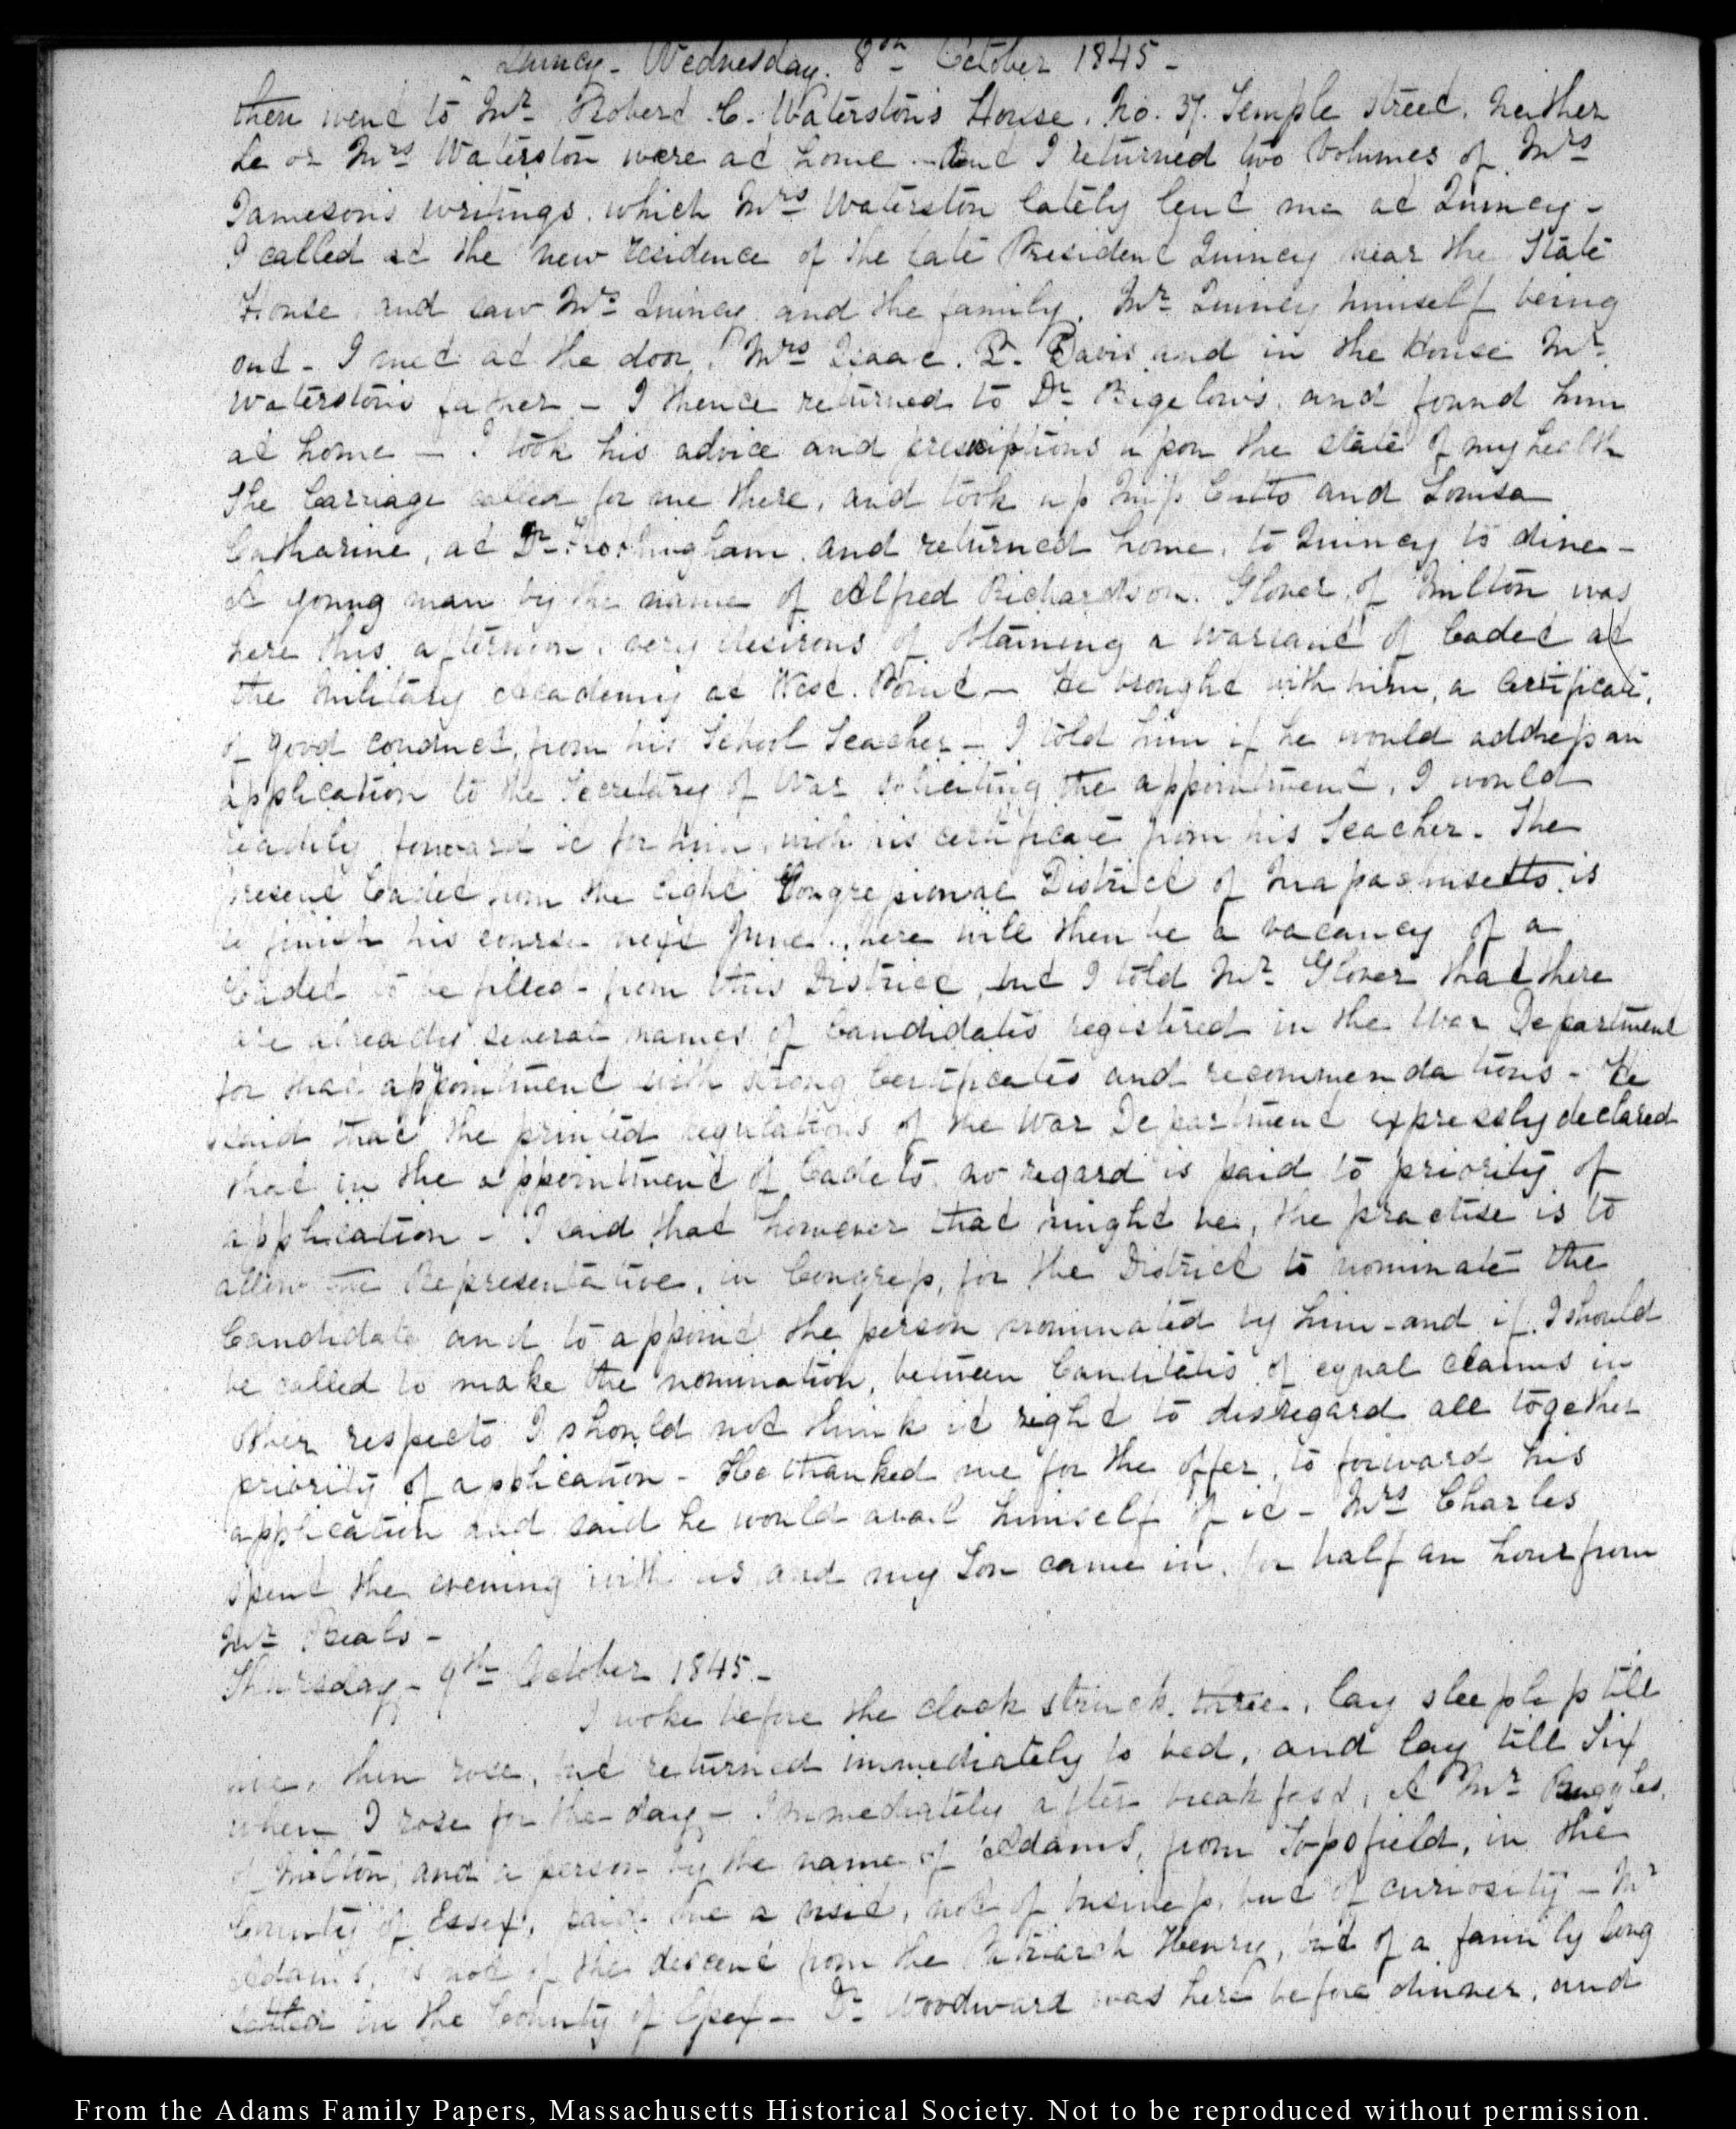 Quincy - Wednesday. 8th October 1845 -
then went to Mr Robert C. Waterston's House. No. 37. Temple Street. Neither
he or Mrs Waterston were at home - But I returned two Volumes of Mrs
Jameson's writings, which Mrs Waterston lately lent me at Quincy -
I called at the new residence of the late President Quincy near the State
House, and saw Mrs Quincy and the family. Mr Quincy himself being
out - I met at the door, Mrs Isaac. P. Davis and in the House Mr
Waterston's father - I thence returned to Dr Bigelow's, and found him
at home - I took his advice and prescriptions upon the state of my health
The Carriage called for me there, and took up Miss Cutts and Louisa
Catharine, at Dr Frothingham. and returned home, to Quincy to dine -
A young man by the name of Alfred Richardson. Glover, of Milton was
here this afternoon, very desirous of obtaining a Warrant of Cadet at
the Military Academy at West. Point - He brought with him, a Certificate,
of good conduct, from his School Teacher - I told him if he would address an
application to the Secretary of War soliciting the appointment, I would
readily forward it for him, with his certificate from his Teacher. The
present Cadet from the Eight Congressional District of Massachusetts is
to finish his course next June. there will then be a vacancy of a
Cadet to be filled - from this District, but I told Mr Glover that there
are already several names of Candidates registered in the War Department
for that appointment with strong Certificates and recommendations - He
said that the printed regulations of the War Department expressly declared
that in the appointment of Cadets, no regard is paid to priority of
application - I said that however that might be, the practise is to
allow the Representative, in Congress, for the District to nominate the
Candidate and to appoint the person nominated by him - and if I should
be called to make the nomination, between Canditates of equal claims in
other respects I should not think it right to disregard all together
priority of application - He thanked me for the offer, to forward his
application and said he would avail himself of it - Mrs Charles
spent the evening with us and my Son came in, for half an hour from
Mr Beals -
Thursday - 9th October 1845 -
I woke before the clock struck three, lay sleepless till
five, then rose, but returned immediately to bed, and lay till Six
when I rose for the day - Immediately after breakfast, A Mr Ruggles,
of Milton, and a person by the name of Adams, from Topsfield, in the
County of Essex, paid me a visit, not of business, but of curiosity - Mr
Adams, is not of the descent from the Patriarch Henry, but of a family long
settled in the County of Essex - Dr Woodward was here before dinner, and
From the Adams Family Papers, Massachusetts Historical Society. Not to be reproduced without permission.